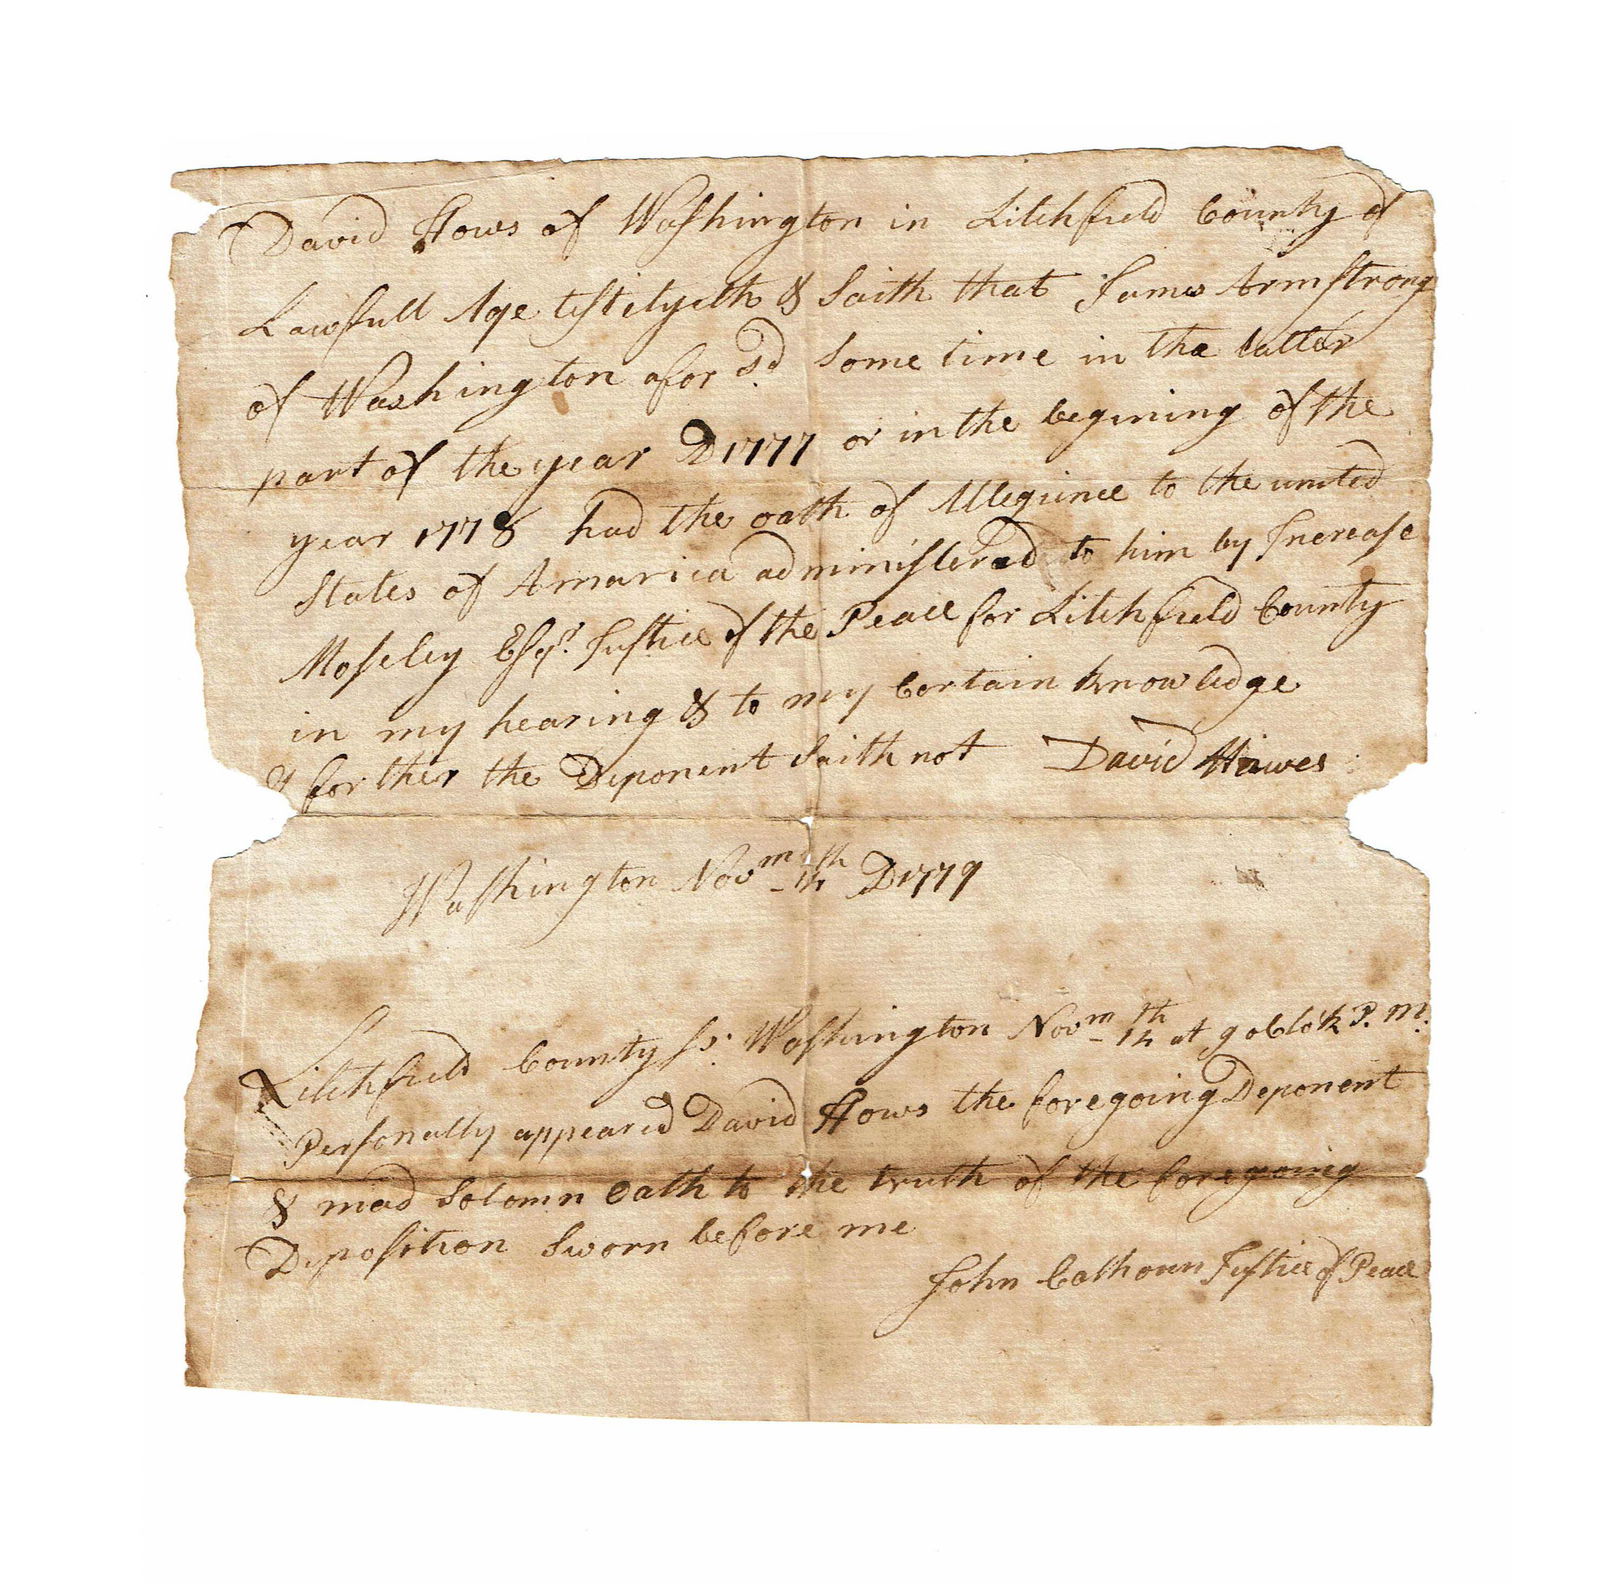 David Hows of Washington in Litchfield County of
Lawfull Age testifyeth & Saith that James Armstrong
of Washington afor sd Some time in the latter
part of the year D 1777 or in the begining of the
year 1778 had the oath of Allegiince to the united
States of Amarica administerad to him by Increase
Moseley Esqr. Justice of the Peace for Litchfield County
in my hearing & to my Certain knowledge
& forther the Deponent Saith not David Hawes
Washington Novm 14th D 1779
Litchfield County ss. Washington Novm 14th at 9 oClok P. M.
Personally appeared David Hows the foregoing Deponent
& mad Solomn Oath to the truth of the foregoing
Deposition Sworn before me
John Calhoun Justice of Peace